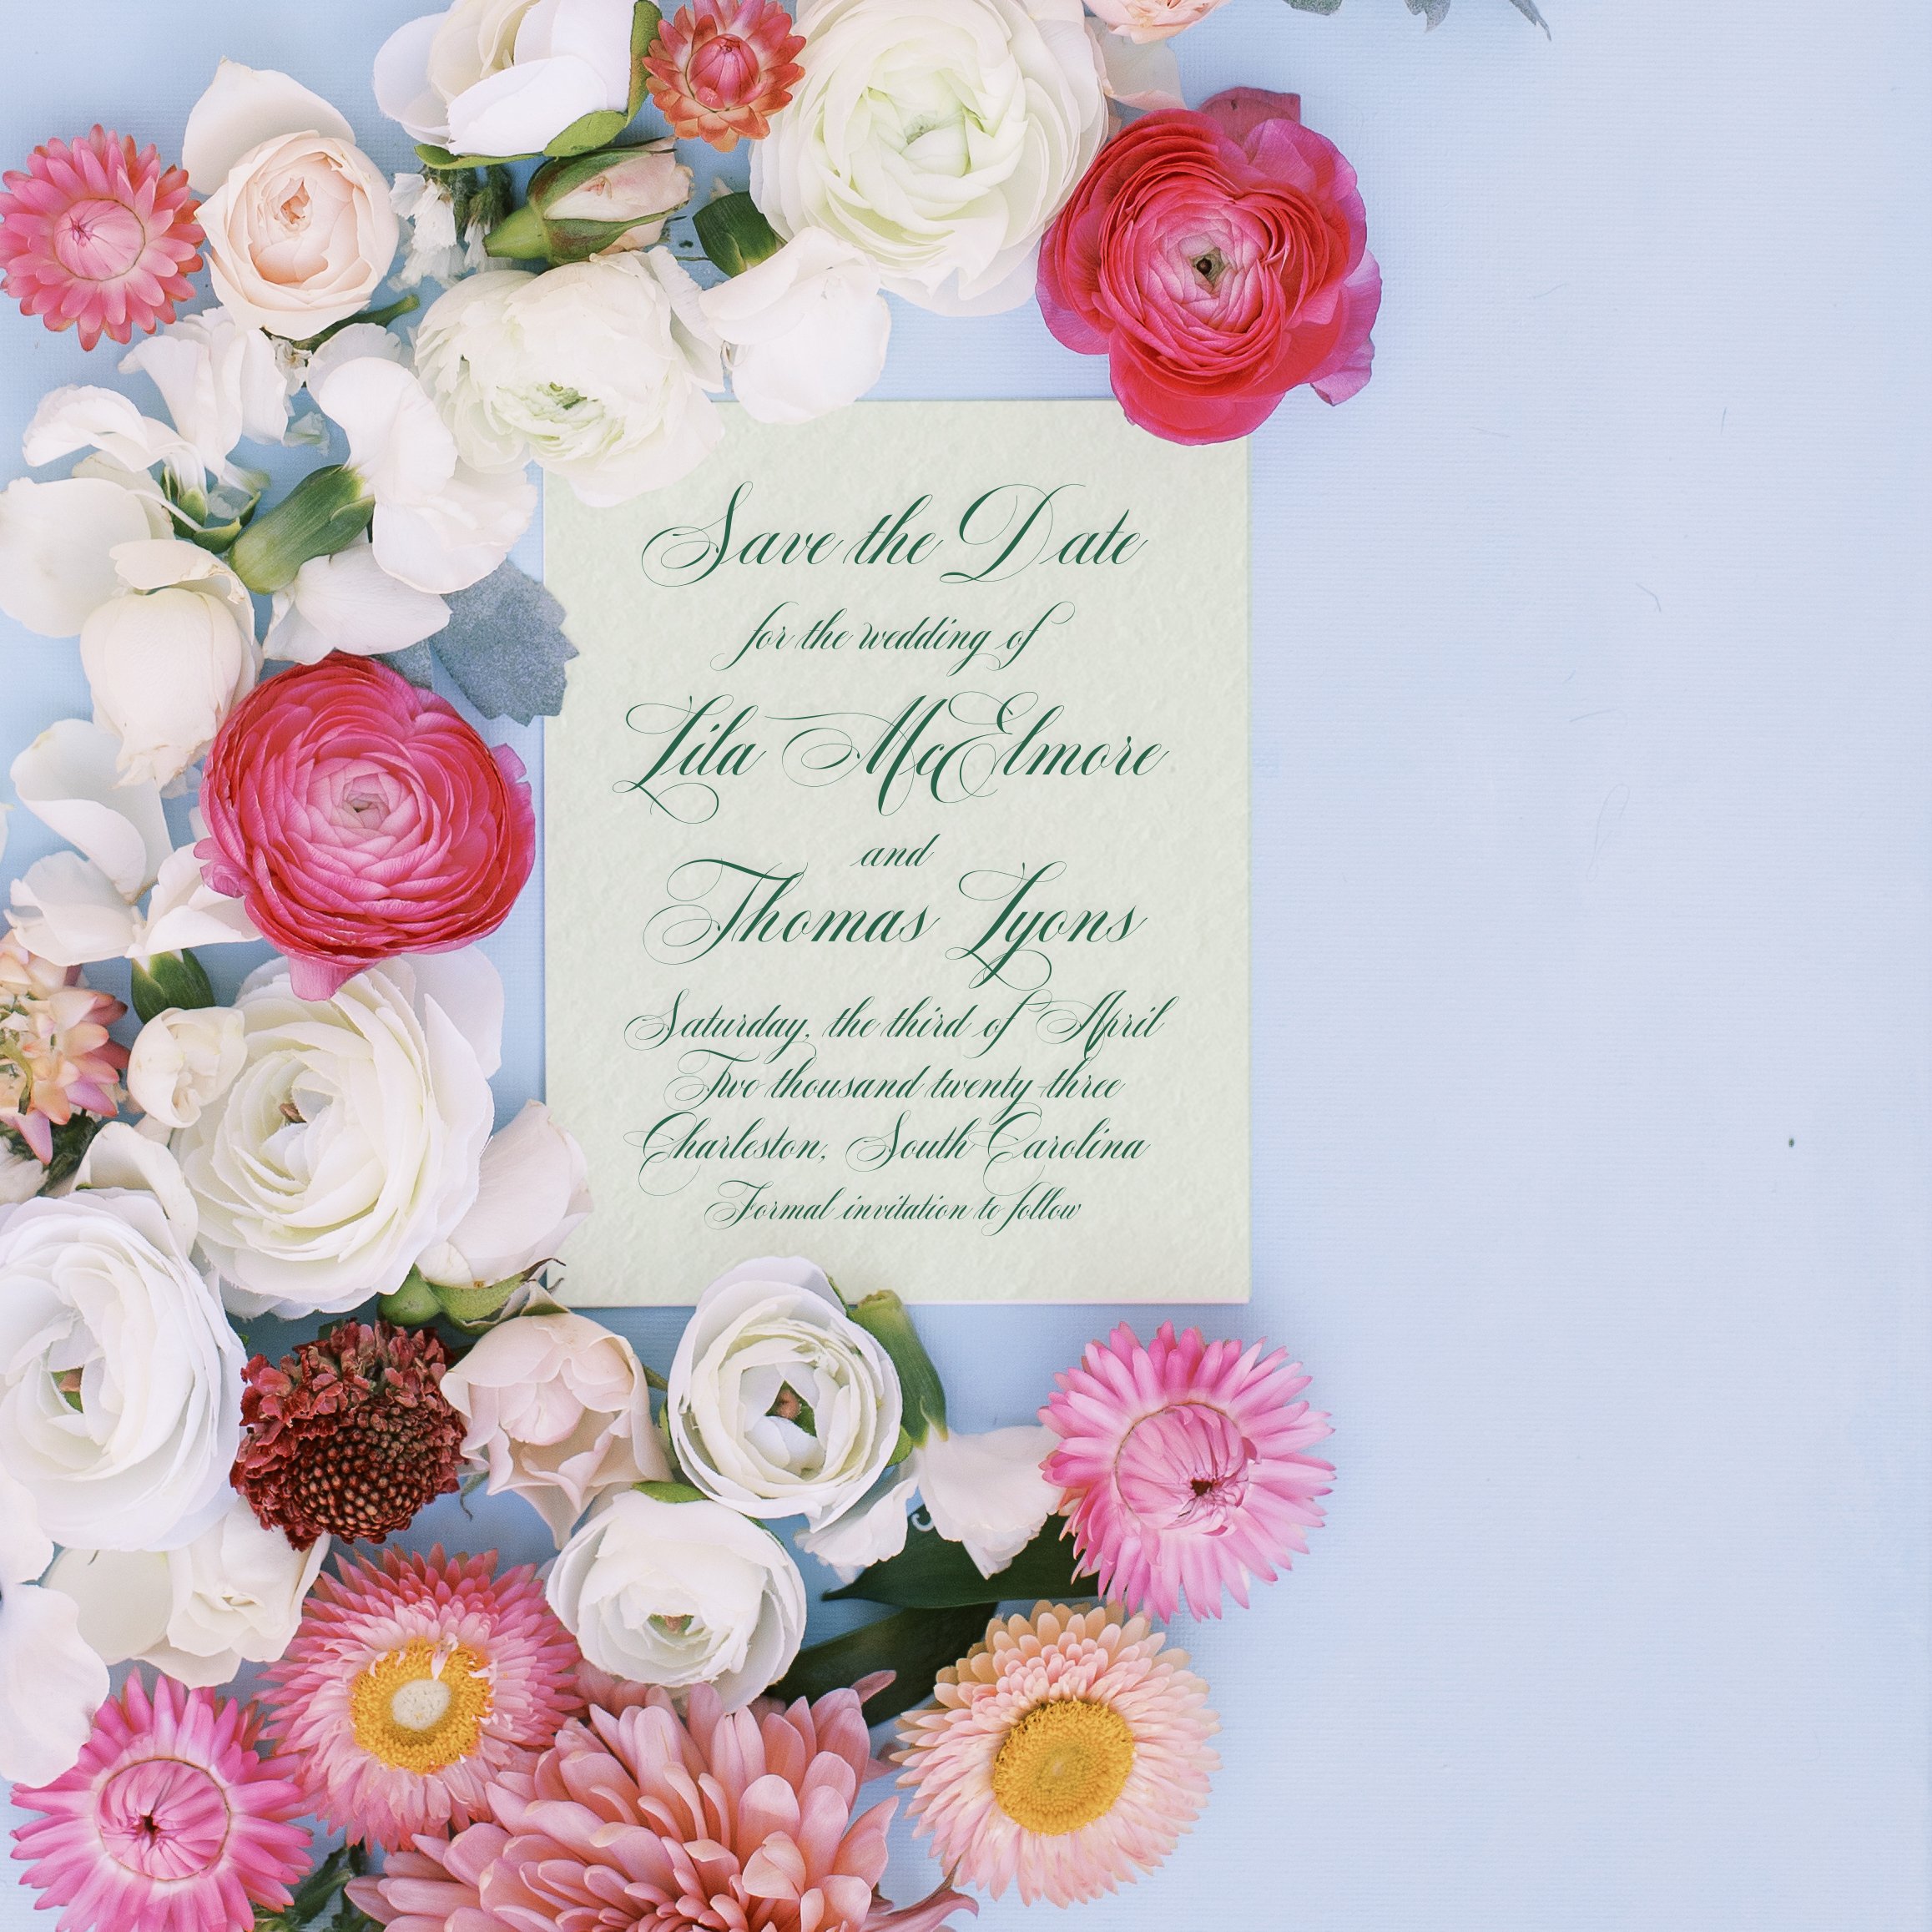 Save the Date
for the wedding of
Lila McElmore
and
Thomas Lyons
Saturday, the third of April
Two thousand twenty-three
Charleston, South Carolina
Formal invitation to follow